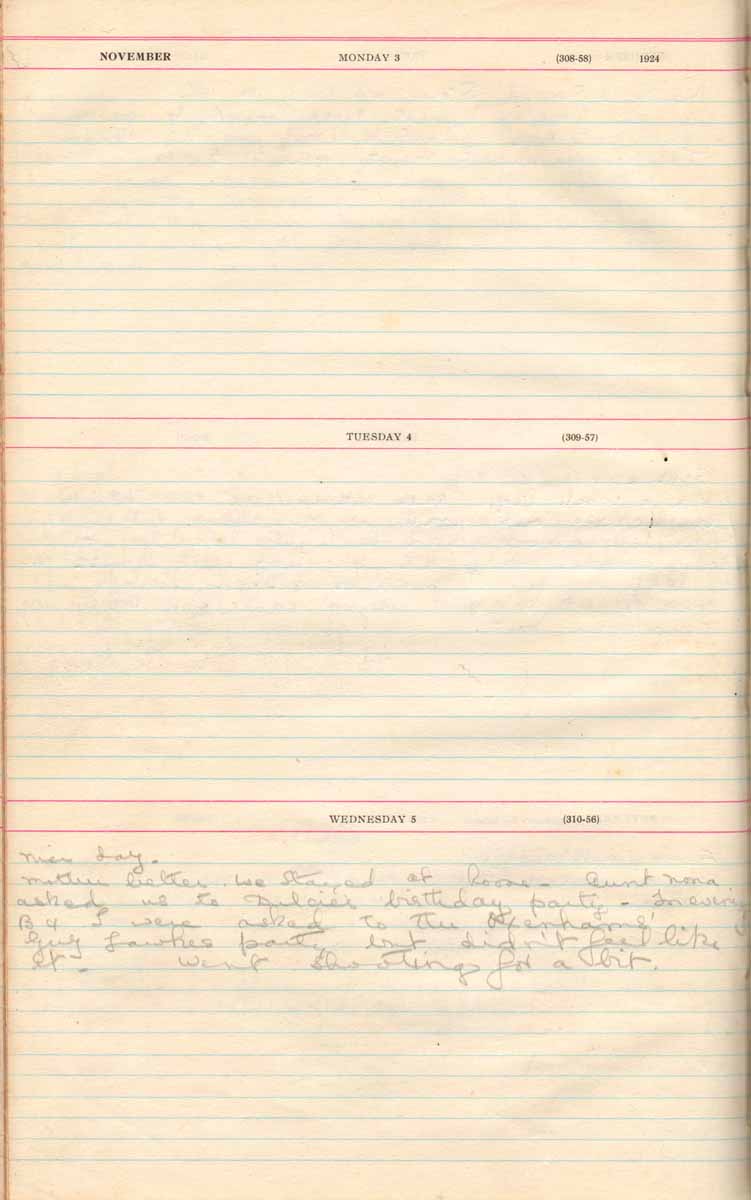 NOVEMBER MONDAY 3 (308-58) 1924
TUESDAY 4 (309-57)
WEDNESDAY 5 (310-56)
Nice day.
Mother better. We stayed at home - Aunt Nona
asked us to Dulcie's birthday party - In evening
B & I were asked to the
Guy Fawkes party but didn't feel like
it - Went shooting for a bit.